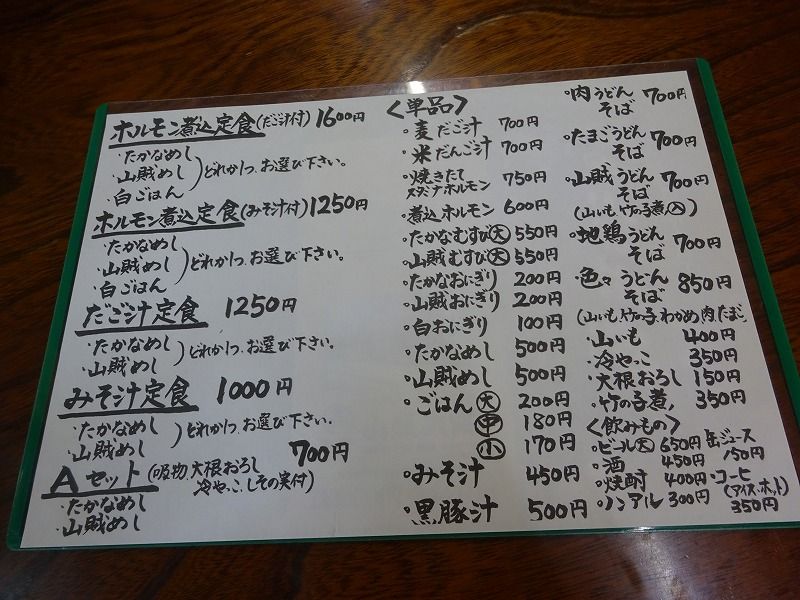 ホルモン煮込定食(だご汁付) 1600円
・たかなめし
・山賊めし
・白ごはん
)どれか1つ、お選び下さい。
ホルモン煮込定食(みそ汁付) 1250円
・たかなめし
・山賊めし
・白ごはん
)どれか1つ、お選び下さい。
だご汁定食 1250円
・たかなめし
・山賊めし
)どれか1つ、お選び下さい。
みそ汁定食 1000円
・たかなめし
・山賊めし
)どれか1つ、お選び下さい。
Aセット(吸物、大根おろし 冷やっこ、しその実付) 700円
・たかなめし
・山賊めし
<単品>
・麦だご汁 700円
・米だんご汁 700円
・焼きたて
スタミナホルモン 750円
・煮込ホルモン 600円
・たかなむすび大 550円
・山賊むすび大 550円
・たかなおにぎり 200円
・山賊おにぎり 200円
・白おにぎり 100円
・たかなめし 500円
・山賊めし 500円
・ごはん 大 200円
中 180円
小 170円
・みそ汁 450円
・黒豚汁 500円
・肉うどん
そば 700円
・たまごうどん
そば 700円
・山賊うどん
そば 700円
(山いも竹の子煮入)
・地鶏うどん
そば 700円
・色々うどん
そば 850円
(山いも、竹の子、わかめ、肉、たまご)
・山いも 400円
・冷やっこ 350円
・大根おろし 150円
・竹の子煮 350円
<飲みもの>
・ビール大 650円
・酒 450円
・焼酎 400円
・ノンアル 300円
缶ジュース
150円
・コーヒ
(アイス、ホット)
350円